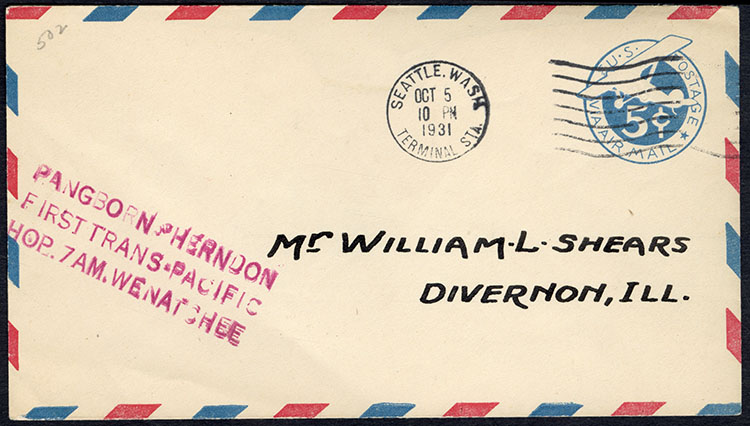 502
SEATTLE, WASH.
OCT 5
10 PM
1931
TERMINAL STA.
U.S. POSTAGE
5¢
VIA AIR MAIL
PANGBORN-HERNDON
FIRST TRANS-PACIFIC
HOP. 7AM. WENATCHEE
Mr WILLIAM·L·SHEARS
DIVERNON, ILL.